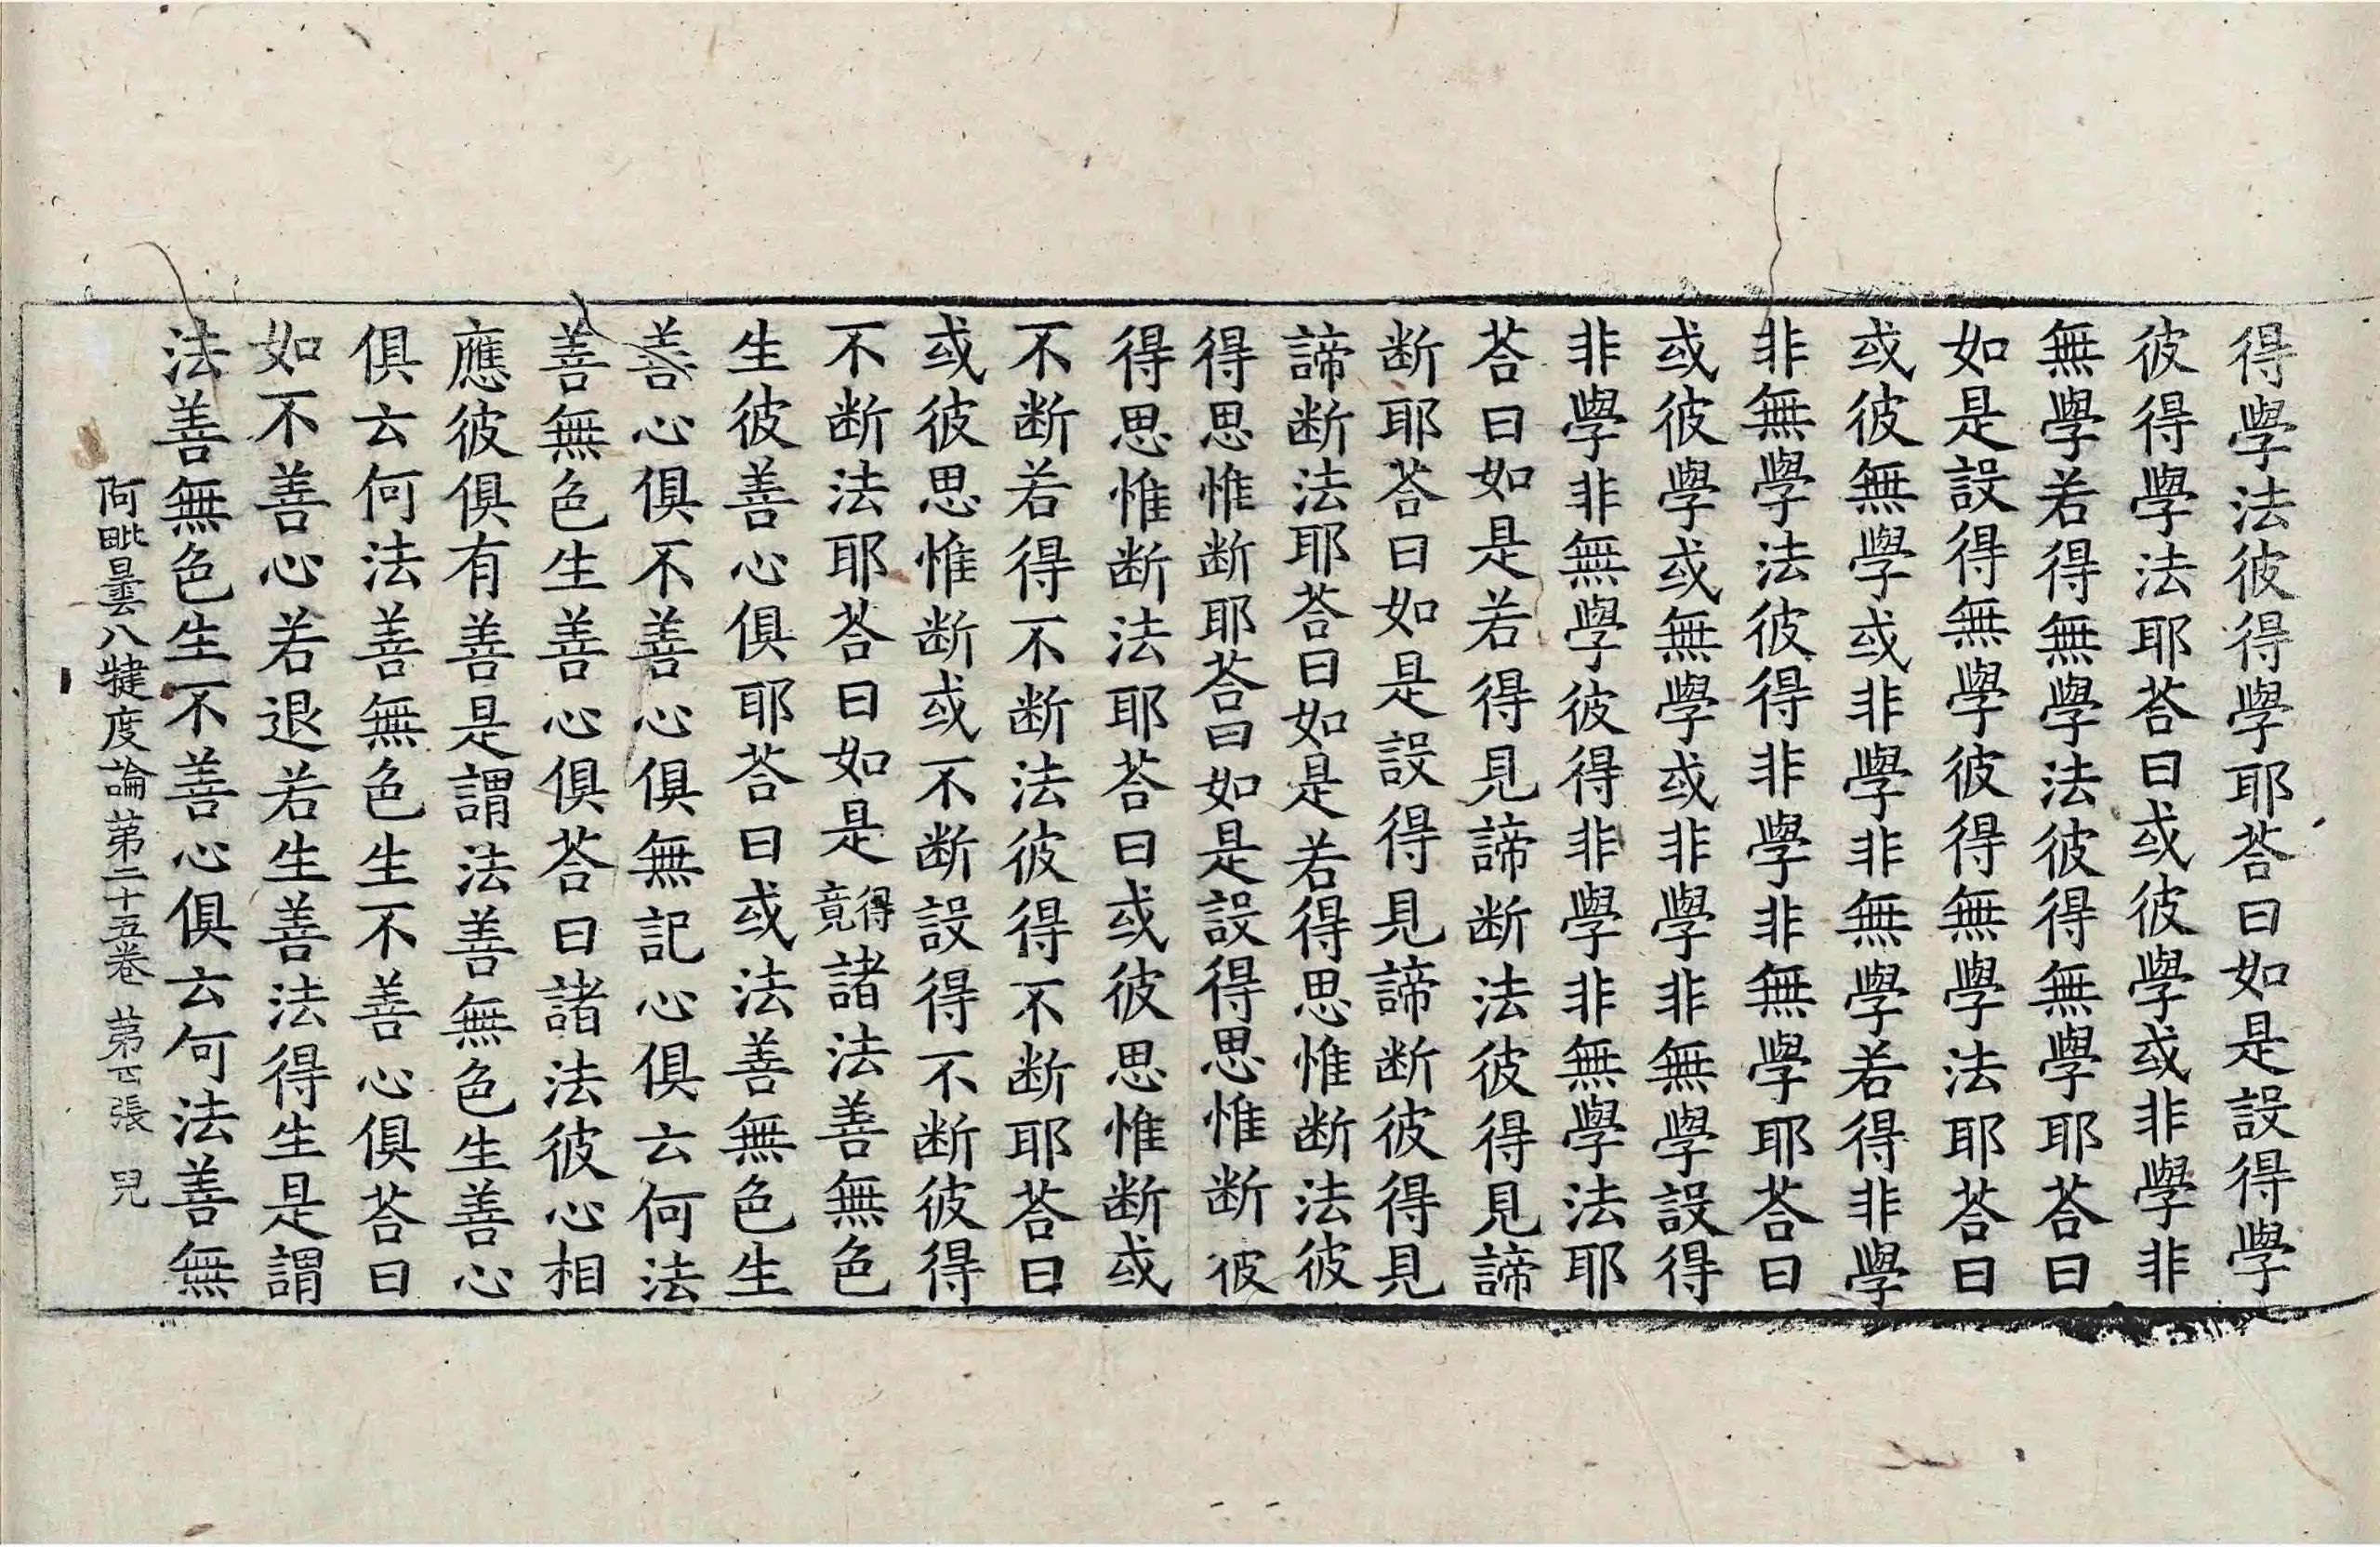 得學法彼得學耶荅曰如是設得學
彼得學法耶荅曰或彼學或非學非
無學若得無學法彼得無學耶荅曰
如是設得無學彼得無學法耶荅曰
或彼無學或非學非無學若得非學
非無學法彼得非學非無學耶荅曰
或彼學或無學或非學非無學設得
非學非無學彼得非學非無學法耶
荅曰如是若得見諦断法彼得見諦
断耶荅曰如是設得見諦断彼得見
諦断法耶荅曰如是若得思惟断法彼
得思惟断耶荅曰如是設得思惟断彼
得思惟断法耶荅曰或彼思惟断或
不断若得不断法彼得不断耶荅曰
或彼思惟断或不断設得不断彼得
不断法耶荅曰如是得竟諸法善無色
生彼善心俱耶荅曰或法善無色生
善心俱不善心俱無記心俱云何法
善無色生善心俱荅曰諸法彼心相
應彼俱有善是謂法善無色生善心
俱云何法善無色生不善心俱荅曰
如不善心若退若生善法得生是謂
法善無色生不善心俱云何法善無
阿毗曇八犍度論第二十五卷 第四張 兒